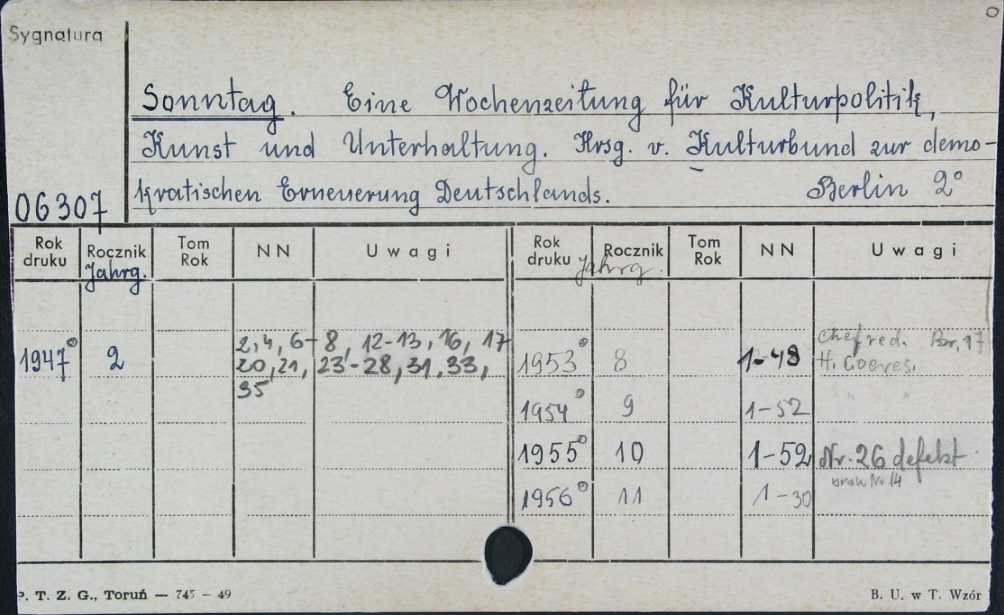 Sygnatura
Sonntag. Eine Wochenzeitung für Kulturpolitik,
Kunst und Unterhaltung. Hrsg. v. Kulturbund zur demo-
kratischen Erneuerung Deutschlands. Berlin 2°
06307
Rok druku Rocznik Jahrg. Tom Rok NN Uwagi Rok druku Rocznik Jahrg. Tom Rok NN Uwagi
2, 4, 6-8, 12-13, 16, 17
1947° 2 20, 21, 23-28, 31, 33,
35
Chefred.
1953° 8 1-48 H.
1954° 9 1-52 " "
1955° 10 1-52 Nr. 26 defekt
brak Nr 14
1956° 11 1-30
P. T. Z. G., Toruń — 745 — 49
B. U. w T. Wzór